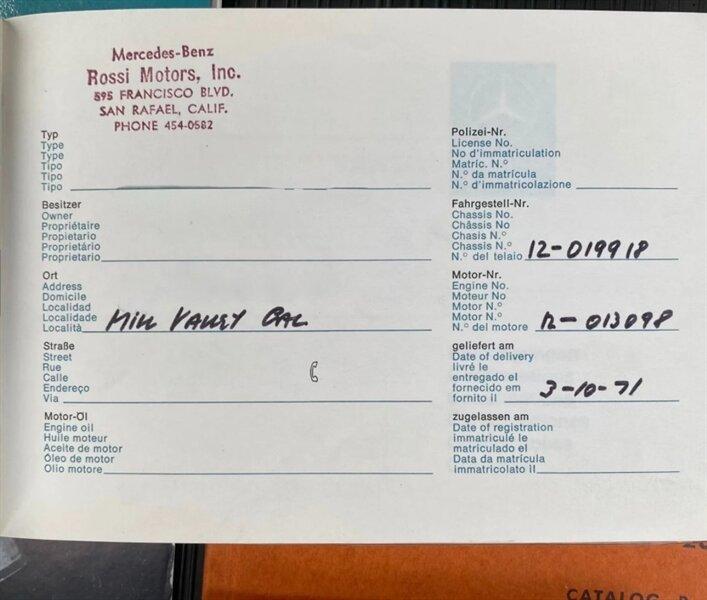 Mercedes-Benz
Rossi Motors, Inc.
595 FRANCISCO BLVD.
SAN RAFAEL, CALIF.
PHONE 454-0582
Typ
Type
Type
Tipo
Tipo
Tipo
Besitzer
Owner
Propriétaire
Propietario
Proprietário
Proprietario
Ort
Address
Domicile
Localidad
Localidade
Località MILL VALLEY CAL
Straße
Street
Rue
Calle
Endereço
Via
Motor-Öl
Engine oil
Huile moteur
Aceite de motor
Óleo de motor
Olio motore
Polizei-Nr.
License No.
No d'immatriculation
Matríc. N.º
N.º da matrícula
N.º d'immatricolazione
Fahrgestell-Nr.
Chassis No.
Châssis No
Chasis N.º
Chassis N.º
N.º del telaio 12-019918
Motor-Nr.
Engine No.
Moteur No
Motor N.º
Motor N.º
N.º del motore 12-013098
geliefert am
Date of delivery
livré le
entregado el
fornecido em
fornito il 3-10-71
zugelassen am
Date of registration
immatriculé le
matriculado el
Data da matrícula
immatricolato il
CATALOG